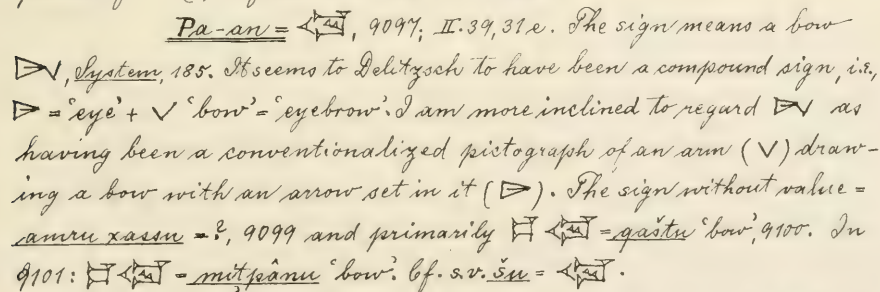 Pa-an = , 9097; II. 39, 31 e. The sign means a bow
, System, 185. It seems to Delitzsch to have been a compound sign, i.e.,
= 'eye' + 'bow' = 'eyebrow'. I am more inclined to regard as
having been a conventionalized pictograph of an arm ( ) draw-
ing a bow with an arrow set in it ( ). The sign without value =
amru xassu = ?, 9099 and primarily = qaštu 'bow', 9100. In
9101: = mitpânu 'bow'. Cf. s.v. šu = .